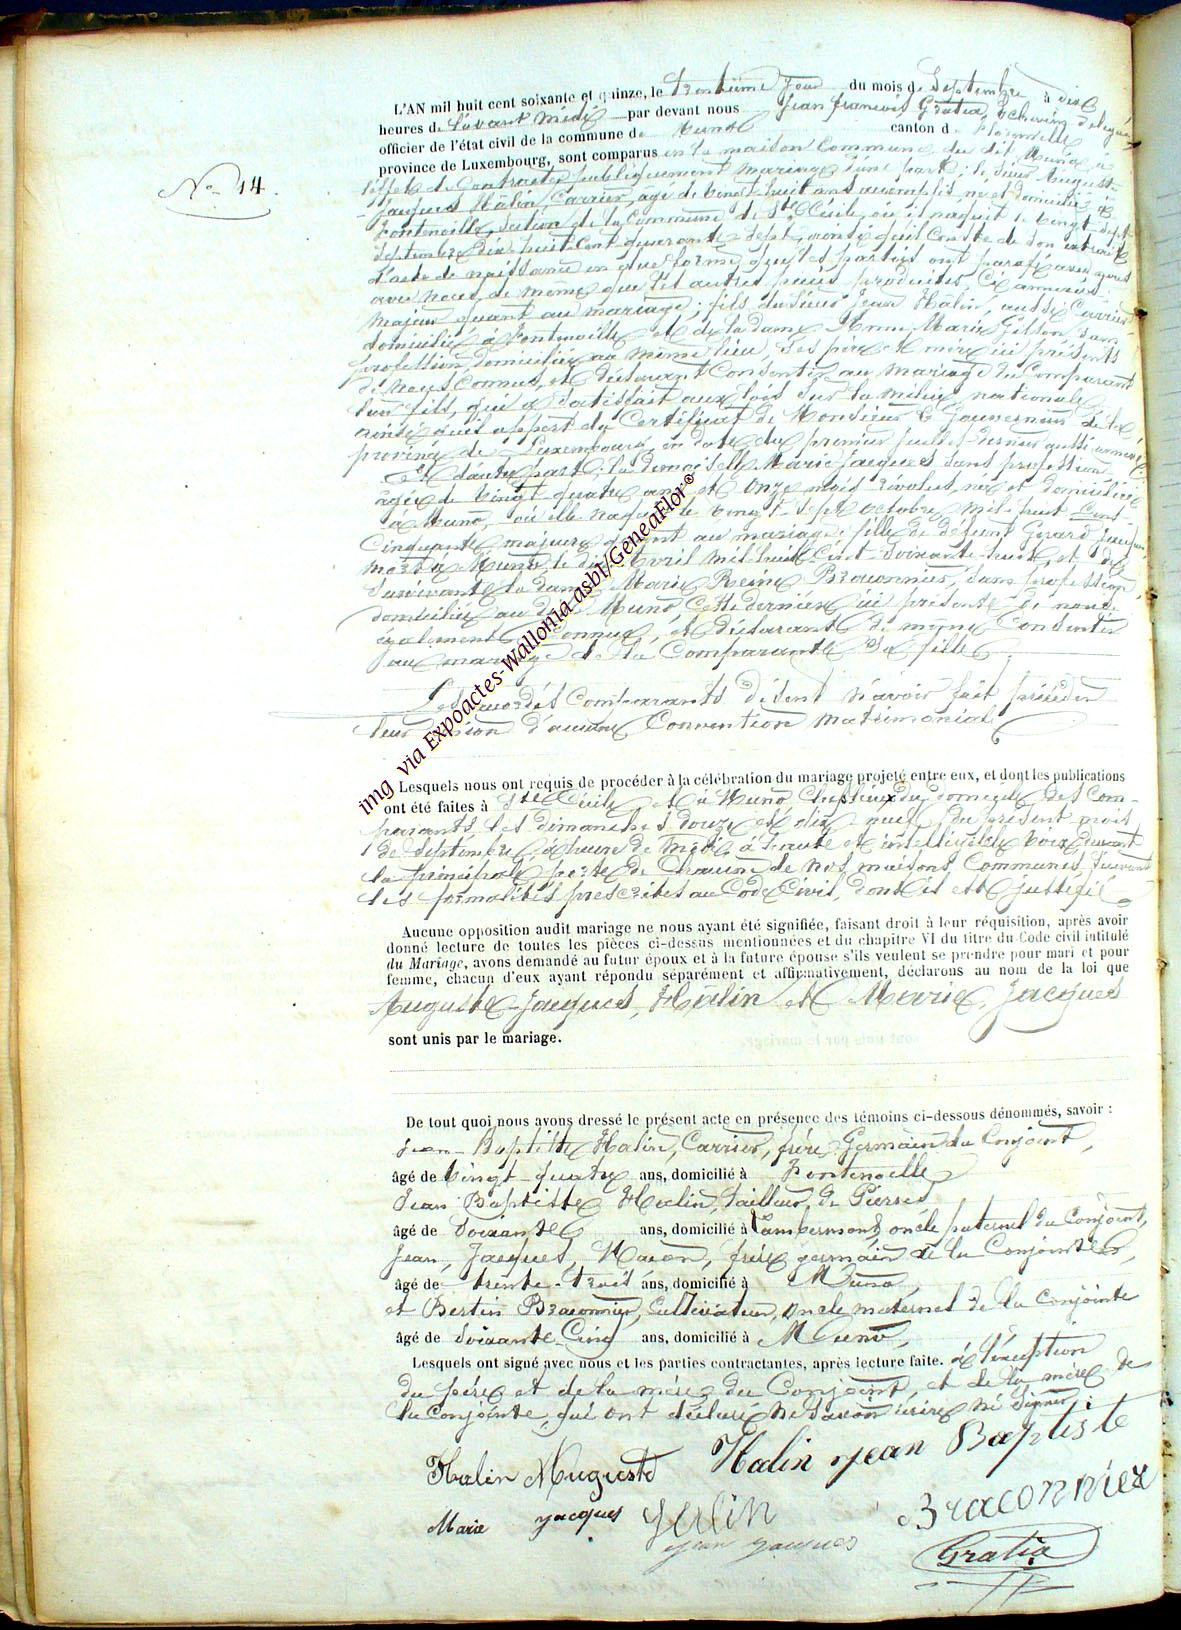 L'AN mil huit cent soixante et quinze, le trentième jour du mois de Septembre à dix
heures de l'avant midi par devant nous Jean francois Gratia, Echevin délégué
officier de l'état civil de la commune de Muno canton de Florenville
province de Luxembourg, sont comparus en la maison Commune du dit Muno à
No 14.
l'effet de Contracter publiquement mariage d'une part; le sieur Auguste
Jacques Halin, Carrier, agé de vingt huit ans accomplis, né et domicilié à
fontenoille, section de la Commune de Ste Cécile, où il naquit le vingt sept
Septembre dix huit Cent quarante sept, ainsi qu'il Conste de son extrait
d'acte de naissance en due forme que les parties ont parafé avec nous
avec nous, de même que les autres pièces produites, Ci annexés.
Majeur quant au mariage; fils du sieur Jean Halin, aussi Carrier
domicilié à fontenoille et de la dame Anne Marie Gillon sans
profession, domiciliée au même lieu, ses père et mère ici présents
de nous Connus, et déclarant Consentir au mariage du Comparant
leur fils, qui a satisfait aux lois sur la milice nationale
ainsi qu'il appert du Certificat de Monsieur le Gouverneur de la
province de Luxembourg en date du premier juillet dernier aussi annexé.
Et d'autre part, la demoiselle Marie Jacques sans profession
âgée de vingt quatre ans et onze mois révolus, née et domiciliée
à Muno, où elle naquit le vingt-sept octobre mil huit Cent
Cinquante, majeure quant au mariage; fille de défunt Gérard Jacques
mort à Muno le dix avril mil huit Cent Soixante-huit, et de
Survivante la dame Marie Reine Braconnier, sans profession,
domiciliée au dit Muno, cette dernière ici présente, de nous
également Connue, et déclarant de même Consentir
au mariage de la Comparante sa fille.
Les susdits Comparants disent n'avoir fait précéder
leur union d'aucune Convention matrimoniale
Lesquels nous ont requis de procéder à la célébration du mariage projeté entre eux, et dont les publications
ont été faites à Ste Cécile et à Muno du domicile des Com-
parants, les dimanches douze et dix-neuf du présent mois
de Septembre, à heure de midi, à haute et intelligible voix devant
la principale porte de Chacune de nos maisons Communes, suivant
les formalités prescrites au Code Civil, dont il est justifié
Aucune opposition audit mariage ne nous ayant été signifiée, faisant droit à leur réquisition, après avoir
donné lecture de toutes les pièces ci-dessus mentionnées et du chapitre VI du titre du Code civil intitulé
du Mariage, avons demandé au futur époux et à la future épouse s'ils veulent se prendre pour mari et pour
femme, chacun d'eux ayant répondu séparément et affirmativement, déclarons au nom de la loi que
Auguste-Jacques, Halin et Marie, Jacques
sont unis par le mariage.
De tout quoi nous avons dressé le présent acte en présence des témoins ci-dessous dénommés, savoir :
Jean-Baptiste Halin, Carrier, frère Germain du Conjoint,
âgé de vingt-quatre ans, domicilié à Fontenoille
Jean Baptiste Halin, tailleur de Pierres
âgé de Soixante ans, domicilié à Lambermont, oncle paternel du Conjoint,
Jean, Jacques, Maçon, frère germain de la Conjointe,
âgé de trente-trois ans, domicilié à Muno,
et Bertin Braconnier, Cultivateur, oncle maternel de la conjointe
âgé de Soixante-Cinq ans, domicilié à Muno,
Lesquels ont signé avec nous et les parties contractantes, après lecture faite. à l'éxception
du père et de la mère du Conjoint, et de la mère de
la Conjointe, qui ont déclaré ne savoir écrire ni signer
Halin Auguste Halin jean Baptiste
Marie jacques halin Braconnier
jean jacques
Gratia
img via Expoactes-Wallonia asbl/GeneaFlor©